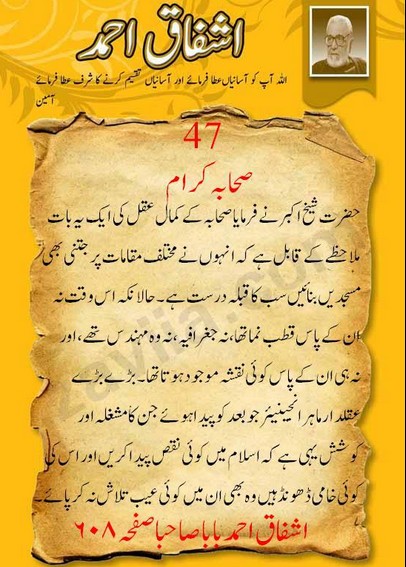 اشفاق احمد
اللہ آپ کو آسانیاں عطا فرمائے اور آسانیاں تقسیم کرنے کا شرف عطا فرمائے
آمین
47
صحابہ کرام
حضرت شیخ اکبر نے فرمایا صحابہ کے کمال عقل کی ایک یہ بات
ملاحظے کے قابل ہے کہ انہوں نے مختلف مقامات پر جتنی بھی
مسجدیں بنائیں سب کا قبلہ درست ہے۔ حالانکہ اس وقت نہ
ان کے پاس قطب نما تھا، نہ جغرافیہ، نہ وہ مہندس تھے، اور
نہ ہی ان کے پاس کوئی نقشہ موجود ہوتا تھا۔ بڑے بڑے
عقلدار ماہر انجینیئر جو بعد کو پیدا ہوئے جن کا مشغلہ اور
کوشش یہی ہے کہ اسلام میں کوئی نقص پیدا کریں اور اس کی
کوئی خامی ڈھونڈیں وہ بھی ان میں کوئی عیب تلاش نہ کر پائے۔
اشفاق احمد بابا صاحبا صفحہ ۶۰۸
zaviia.com